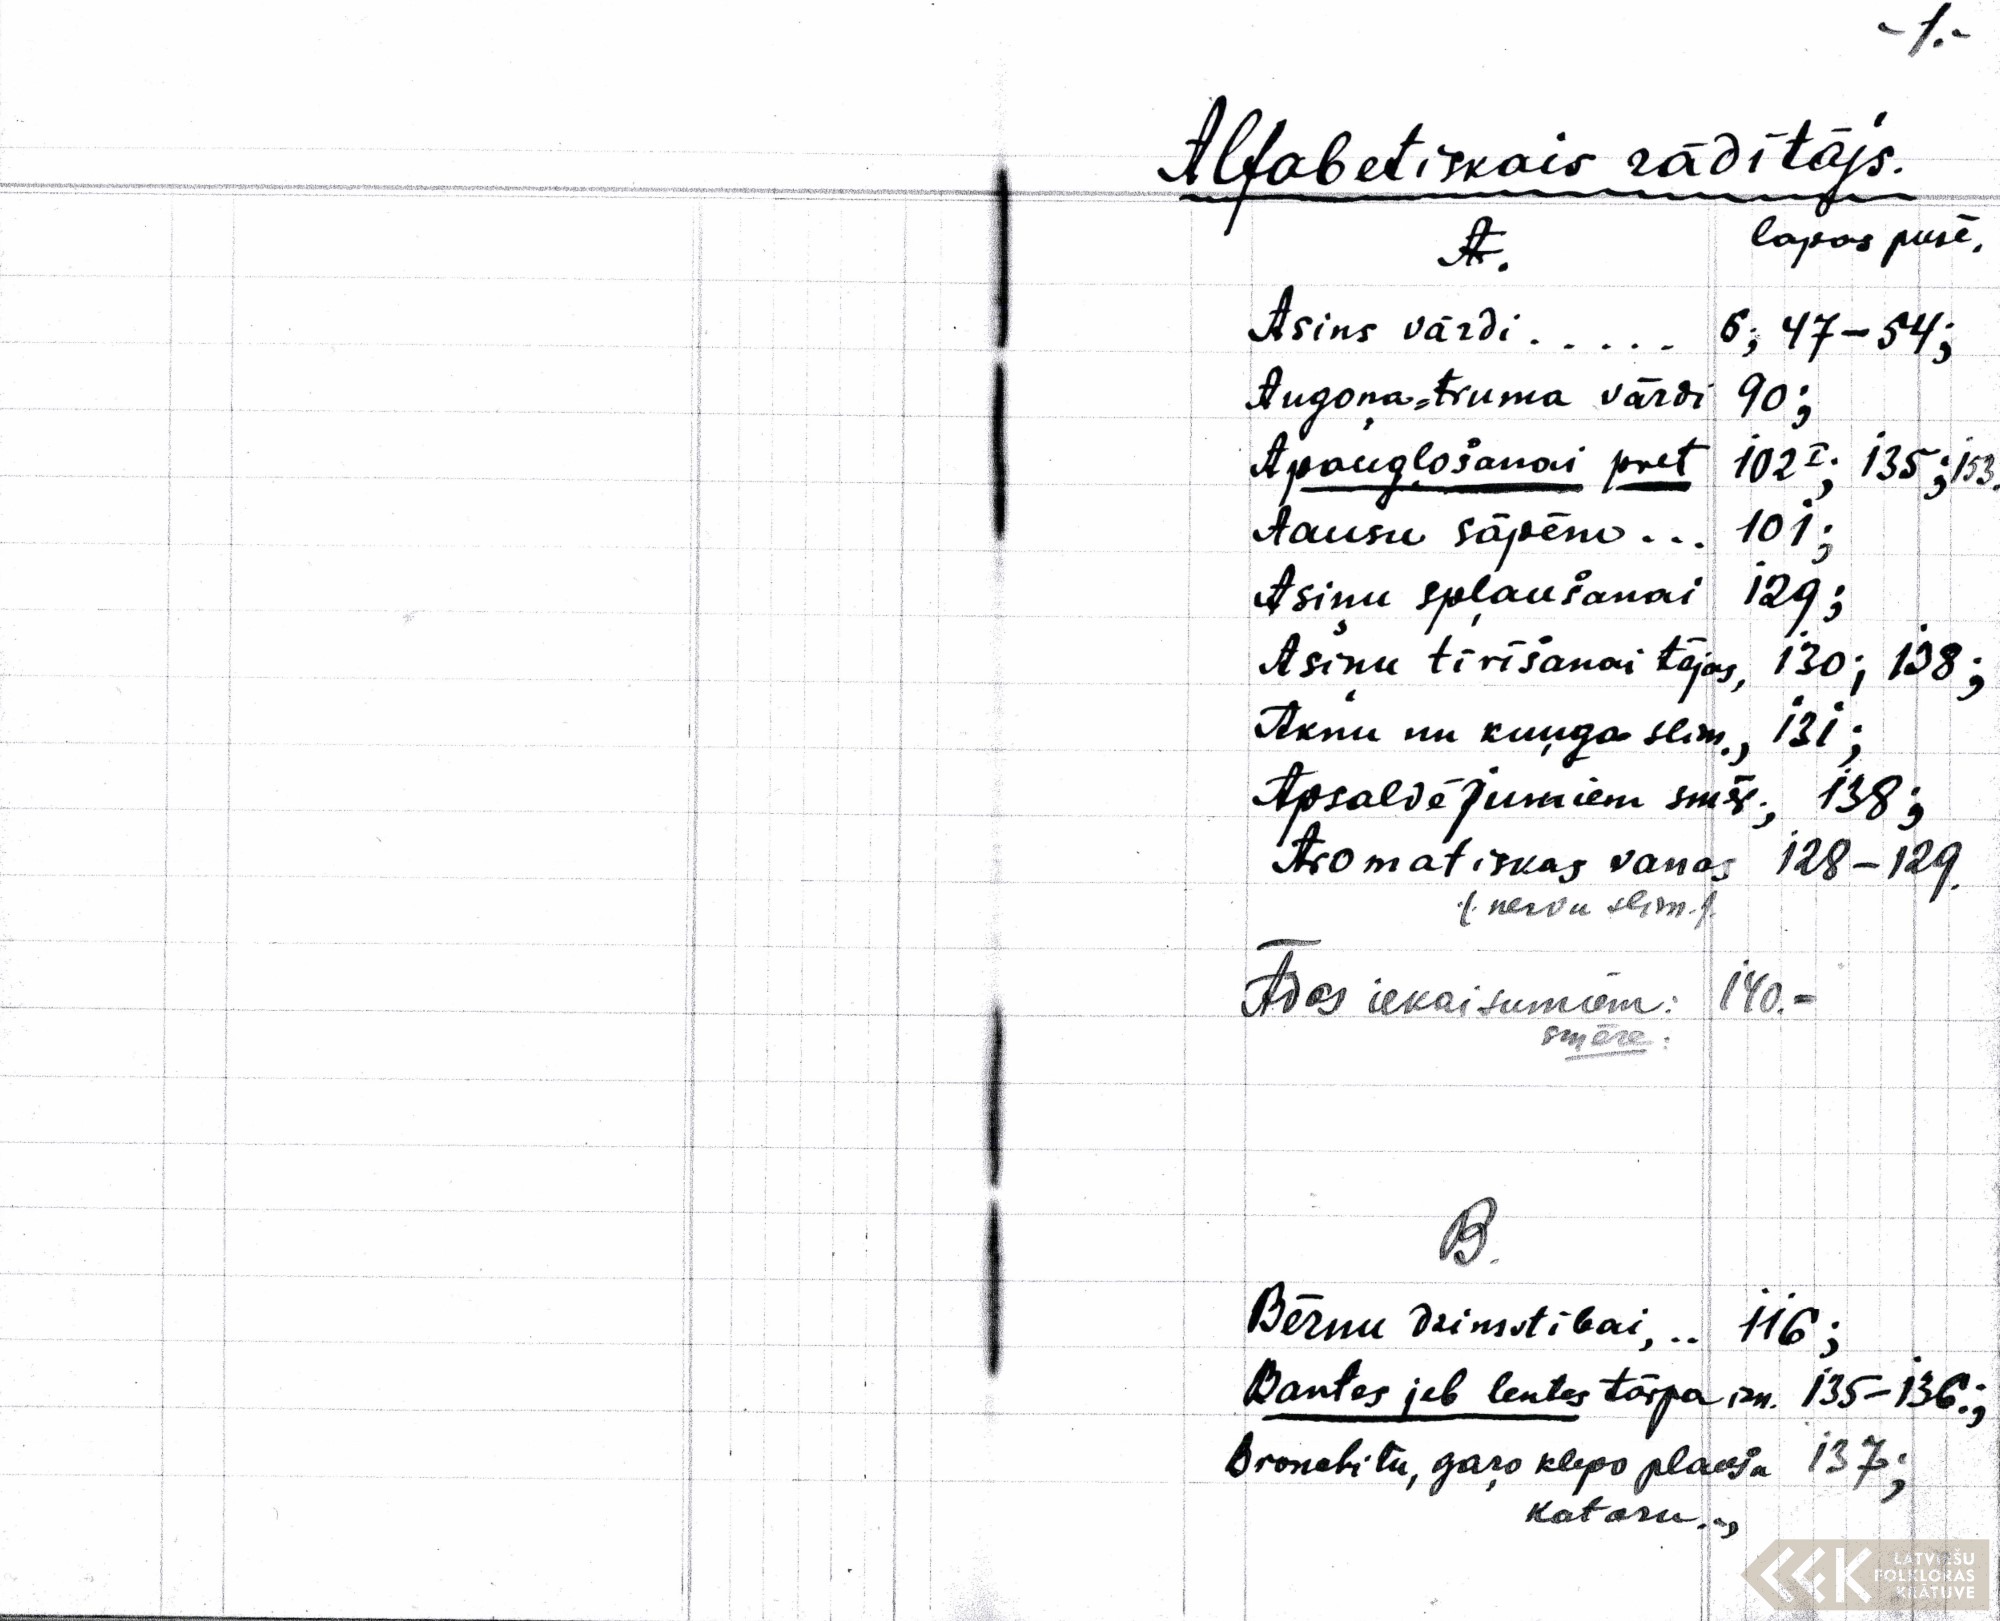 -1.-
Alfabetiskais rādītājs.
A. lapas pusē.
Asins vārdi . . . . . 6; 47-54;
Augoņa=truma vārdi 90;
Apauglošanai pret 102 I; 135; 153.
Aausu sāpēm ... 101;
Asiņu spļaušanai 129;
Asiņu tīrīšanai tējas, 130; 138;
Aknu un kuņģa slim., 131;
Apsaldējumiem smēr., 138;
Aromatiskas vanas 128-129.
/. nervu slim./.
Ādas iekaisumiem: 140.-
smēre:
B.
Bērnu dzimstībai, .. 116;
Bantes jeb lentes tārpa izn. 135-136.;
Bronchitu, gaŗo klepo plaušu 137;
kataru..,
LATVIEŠU
FOLKLORAS
KRĀTUVE